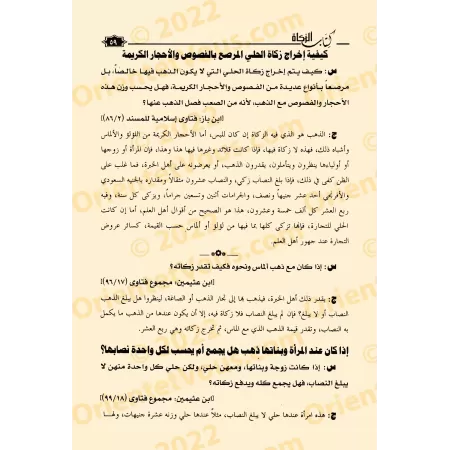 كتاب الزكاة
٥٩
كيفية إخراج زكاة الحلي المرصع بالفصوص والأحجار الكريمة
س: كيف يتم إخراج زكاة الحلي التي لا يكون الذهب فيها خالصاً، بل
مرصعاً بأنواع عديدة من الفصوص والأحجار الكريمة، فهل يحسب وزن هذه
الأحجار والفصوص مع الذهب، لأنه من الصعب فصل الذهب عنها؟
[ابن باز: فتاوى إسلامية للمسند (٨٦/٢)]
ج: الذهب هو الذي فيه الزكاة إن كان للبس، أما الأحجار الكريمة من اللؤلؤ والألماس
وأشباه ذلك، فهذه لا زكاة فيها، فإذا كانت قلائد وغيرها فيها هذا وهذا، فإن المرأة أو زوجها
أو أولياءها ينظرون ويتأملون، يقدرون الذهب، أو يعرضونه على أهل الخبرة، فما غلب على
الظن كفى في ذلك، فإذا بلغ النصاب زكي، والنصاب عشرون مثقالاً ومقداره بالجنيه السعودي
والأفرنجي أحد عشر جنيهاً ونصف، والجرامات اثنين وتسعين جراماً، ويزكى كل سنة، وفيه
ربع العشر كل ألف خمسة وعشرون، هذا هو الصحيح من أقوال أهل العلم، أما إن كانت
الحلي للتجارة، فإنها تزكى كلها بما فيها من لؤلؤ أو ألماس حسب القيمة، كسائر عروض
التجارة عند جمهور أهل العلم.
س: إذا كان مع ذهب ألماس ونحوه فكيف تقدر زكاته؟
[ابن عثيمين: مجموع فتاوى (٩٦/١٧)]
ج: يقدر ذلك أهل الخبرة، فيذهب بها إلى تجار الذهب أو الصاغة، لينظروا هل يبلغ الذهب
النصاب أو لا يبلغ؟ فإن لم يبلغ النصاب فلا زكاة فيه، إلا أن يكون عندها من الذهب ما يكمل
به النصاب، وتقدر قيمة الذهب الذي مع الماس، ثم تخرج زكاته وهي ربع العشر.
إذا كان عند المرأة وبناتها ذهب هل يجمع أم يحسب لكل واحدة نصابها؟
س: إذا كانت زوجة وبناتها، ومعهن حلي، ولكن حلي كل واحدة منهن لا
يبلغ النصاب، فهل يجمع كله ويدفع زكاته؟
[ابن عثيمين: مجموع فتاوى (٩٩/١٨)]
ج: هذه امرأة عندها حلي لا يبلغ النصاب، مثلاً عندها حلي وزنه عشرة جنيهات، ولها
© 2022